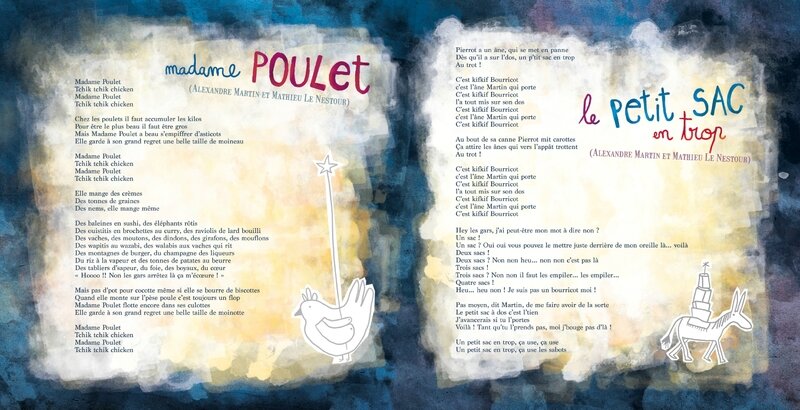 madame POULET
(Alexandre Martin et Mathieu Le Nestour)
Madame Poulet
Tchik tchik chicken
Madame Poulet
Tchik tchik chicken
Chez les poulets il faut accumuler les kilos
Pour être le plus beau il faut être gros
Mais Madame Poulet a beau s'empiffrer d'asticots
Elle garde à son grand regret une belle taille de moineau
Madame Poulet
Tchik tchik chicken
Madame Poulet
Tchik tchik chicken
Elle mange des crèmes
Des tonnes de graines
Des nems, elle mange même
Des baleines en sushi, des éléphants rôtis
Des ouistitis en brochettes au curry, des raviolis de lard bouilli
Des vaches, des moutons, des dindons, des girafons, des mouflons
Des wapitis au wazabi, des walabis aux vaches qui rit
Des montagnes de burger, du champagne des liqueurs
Du riz à la vapeur et des tonnes de patates au beurre
Des tabliers d'sapeur, du foie, des boyaux, du cœur
« Hoooo !! Non les gars arrêtez là ça m'écœure ! »
Mais pas d'pot pour cocotte même si elle se beurre de biscottes
Quand elle monte sur l'pèse poule c'est toujours un flop
Madame Poulet flotte encore dans ses culottes
Elle garde à son grand regret une belle taille de minotte
Madame Poulet
Tchik tchik chicken
Madame Poulet
Tchik tchik chicken
le petit SAC
en trop
(Alexandre Martin et Mathieu Le Nestour)
Pierrot a un âne, qui se met en panne
Dès qu'il a sur l'dos, un p'tit sac en trop
Au trot !
C'est kifkif Bourricot
c'est l'âne Martin qui porte
C'est kifkif Bourricot
l'a tout mis sur son dos
C'est kifkif Bourricot
c'est l'âne Martin qui porte
C'est kifkif Bourricot
Au bout de sa canne Pierrot mit carottes
Ça attire les ânes qui vers l'appât trottent
Au trot !
C'est kifkif Bourricot
c'est l'âne Martin qui porte
C'est kifkif Bourricot
l'a tout mis sur son dos
C'est kifkif Bourricot
c'est l'âne Martin qui porte
C'est kifkif Bourricot
Hey les gars, j'ai peut-être mon mot à dire non ?
Un sac !
Un sac ? Oui oui vous pouvez le mettre juste derrière de mon oreille là... voilà
Deux sacs !
Deux sacs ? Non non heu... non non c'est pas là
Trois sacs !
Trois sacs ? Non non il faut les empiler... les empiler...
Quatre sacs !
Heu... heu non ! Je suis pas un bourricot moi !
Pas moyen, dit Martin, de me faire avoir de la sorte
Le petit sac à dos c'est l'tien
J'avancerais si tu l'portes
Voilà ! Tant qu'tu l'prends pas, moi j'bouge pas d'là !
Un petit sac en trop, ça use, ça use
Un petit sac en trop, ça use les sabots